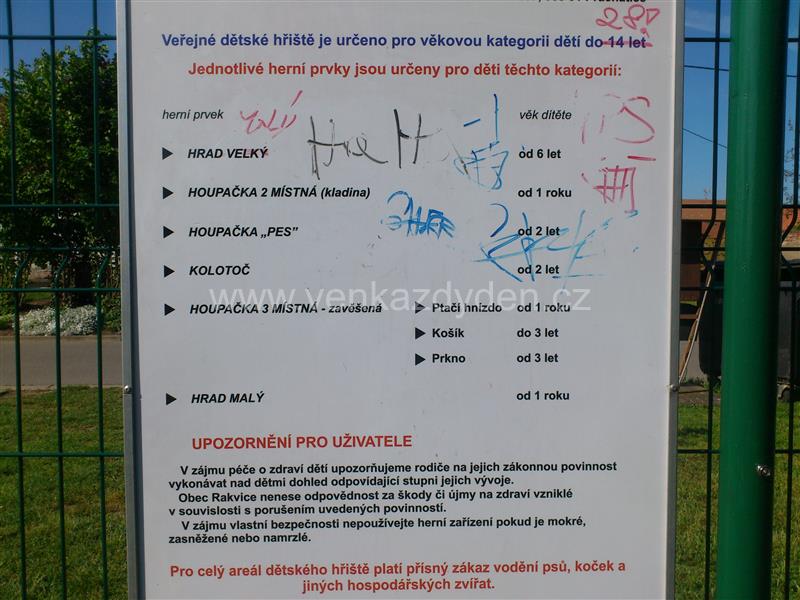 28?
Veřejné dětské hřiště je určeno pro věkovou kategorii dětí do 14 let
Jednotlivé herní prvky jsou určeny pro děti těchto kategorií:
herní prvek věk dítěte
HRAD VELKÝ od 6 let
HOUPAČKA 2 MÍSTNÁ (kladina) od 1 roku
HOUPAČKA „PES” od 2 let
KOLOTOČ od 2 let
HOUPAČKA 3 MÍSTNÁ - zavěšená Ptačí hnízdo od 1 roku
Košík do 3 let
Prkno od 3 let
HRAD MALÝ od 1 roku
www.venkazdyden.cz
UPOZORNĚNÍ PRO UŽIVATELE
V zájmu péče o zdraví dětí upozorňujeme rodiče na jejich zákonnou povinnost
vykonávat nad dětmi dohled odpovídající stupni jejich vývoje.
Obec Rakvice nenese odpovědnost za škody či újmy na zdraví vzniklé
v souvislosti s porušením uvedených povinností.
V zájmu vlastní bezpečnosti nepoužívejte herní zařízení pokud je mokré,
zasněžené nebo namrzlé.
Pro celý areál dětského hřiště platí přísný zákaz vodění psů, koček a
jiných hospodářských zvířat.